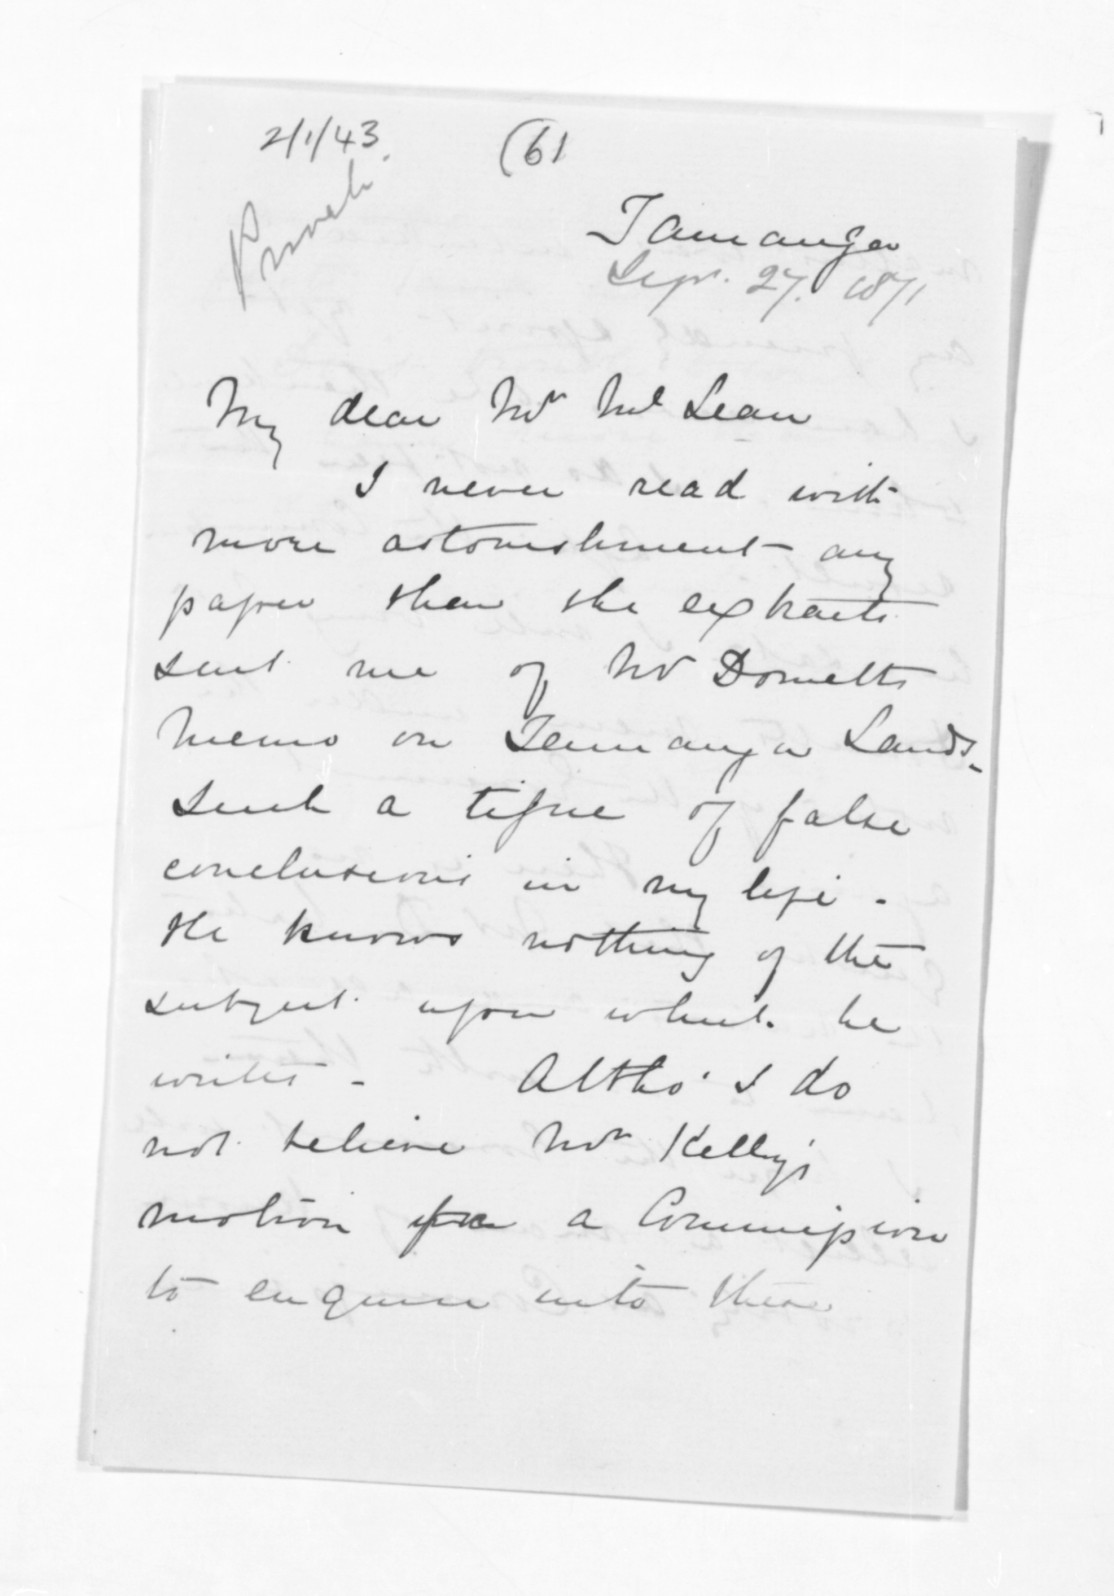 2/1/43.
(61
Private
Tauranga
Sepr. 27. 1871
My dear Mr McLean
I never read with
more astonishment any
paper than the extracts
sent me of Mr Dometts
memo on Tauranga Lands.
Such a tissue of false
conclusions in my life.
He knows nothing of the
subject upon which he
writes - Altho' I do
not believe Mr Kelly's
motion for a Commission
to enquire into these